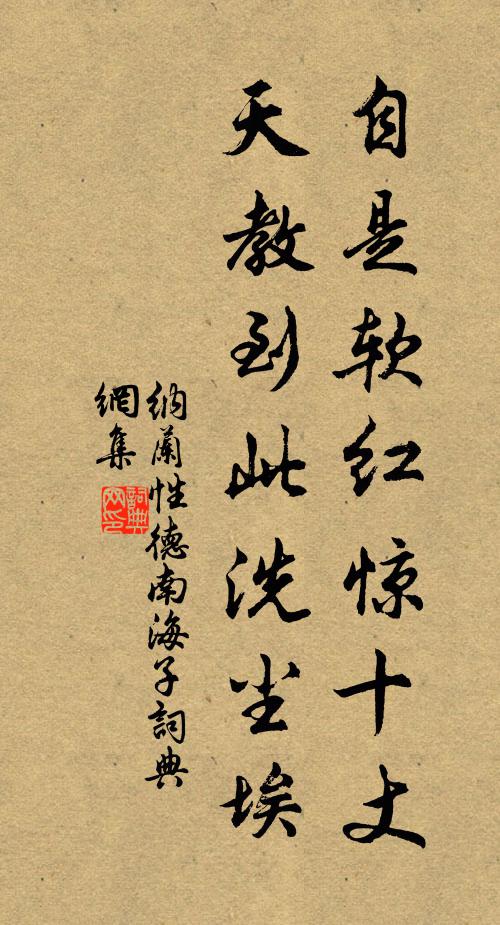 自是软红惊十丈
天教到此洗尘埃
纳兰性德南海子詞典
網集
詞典
网印